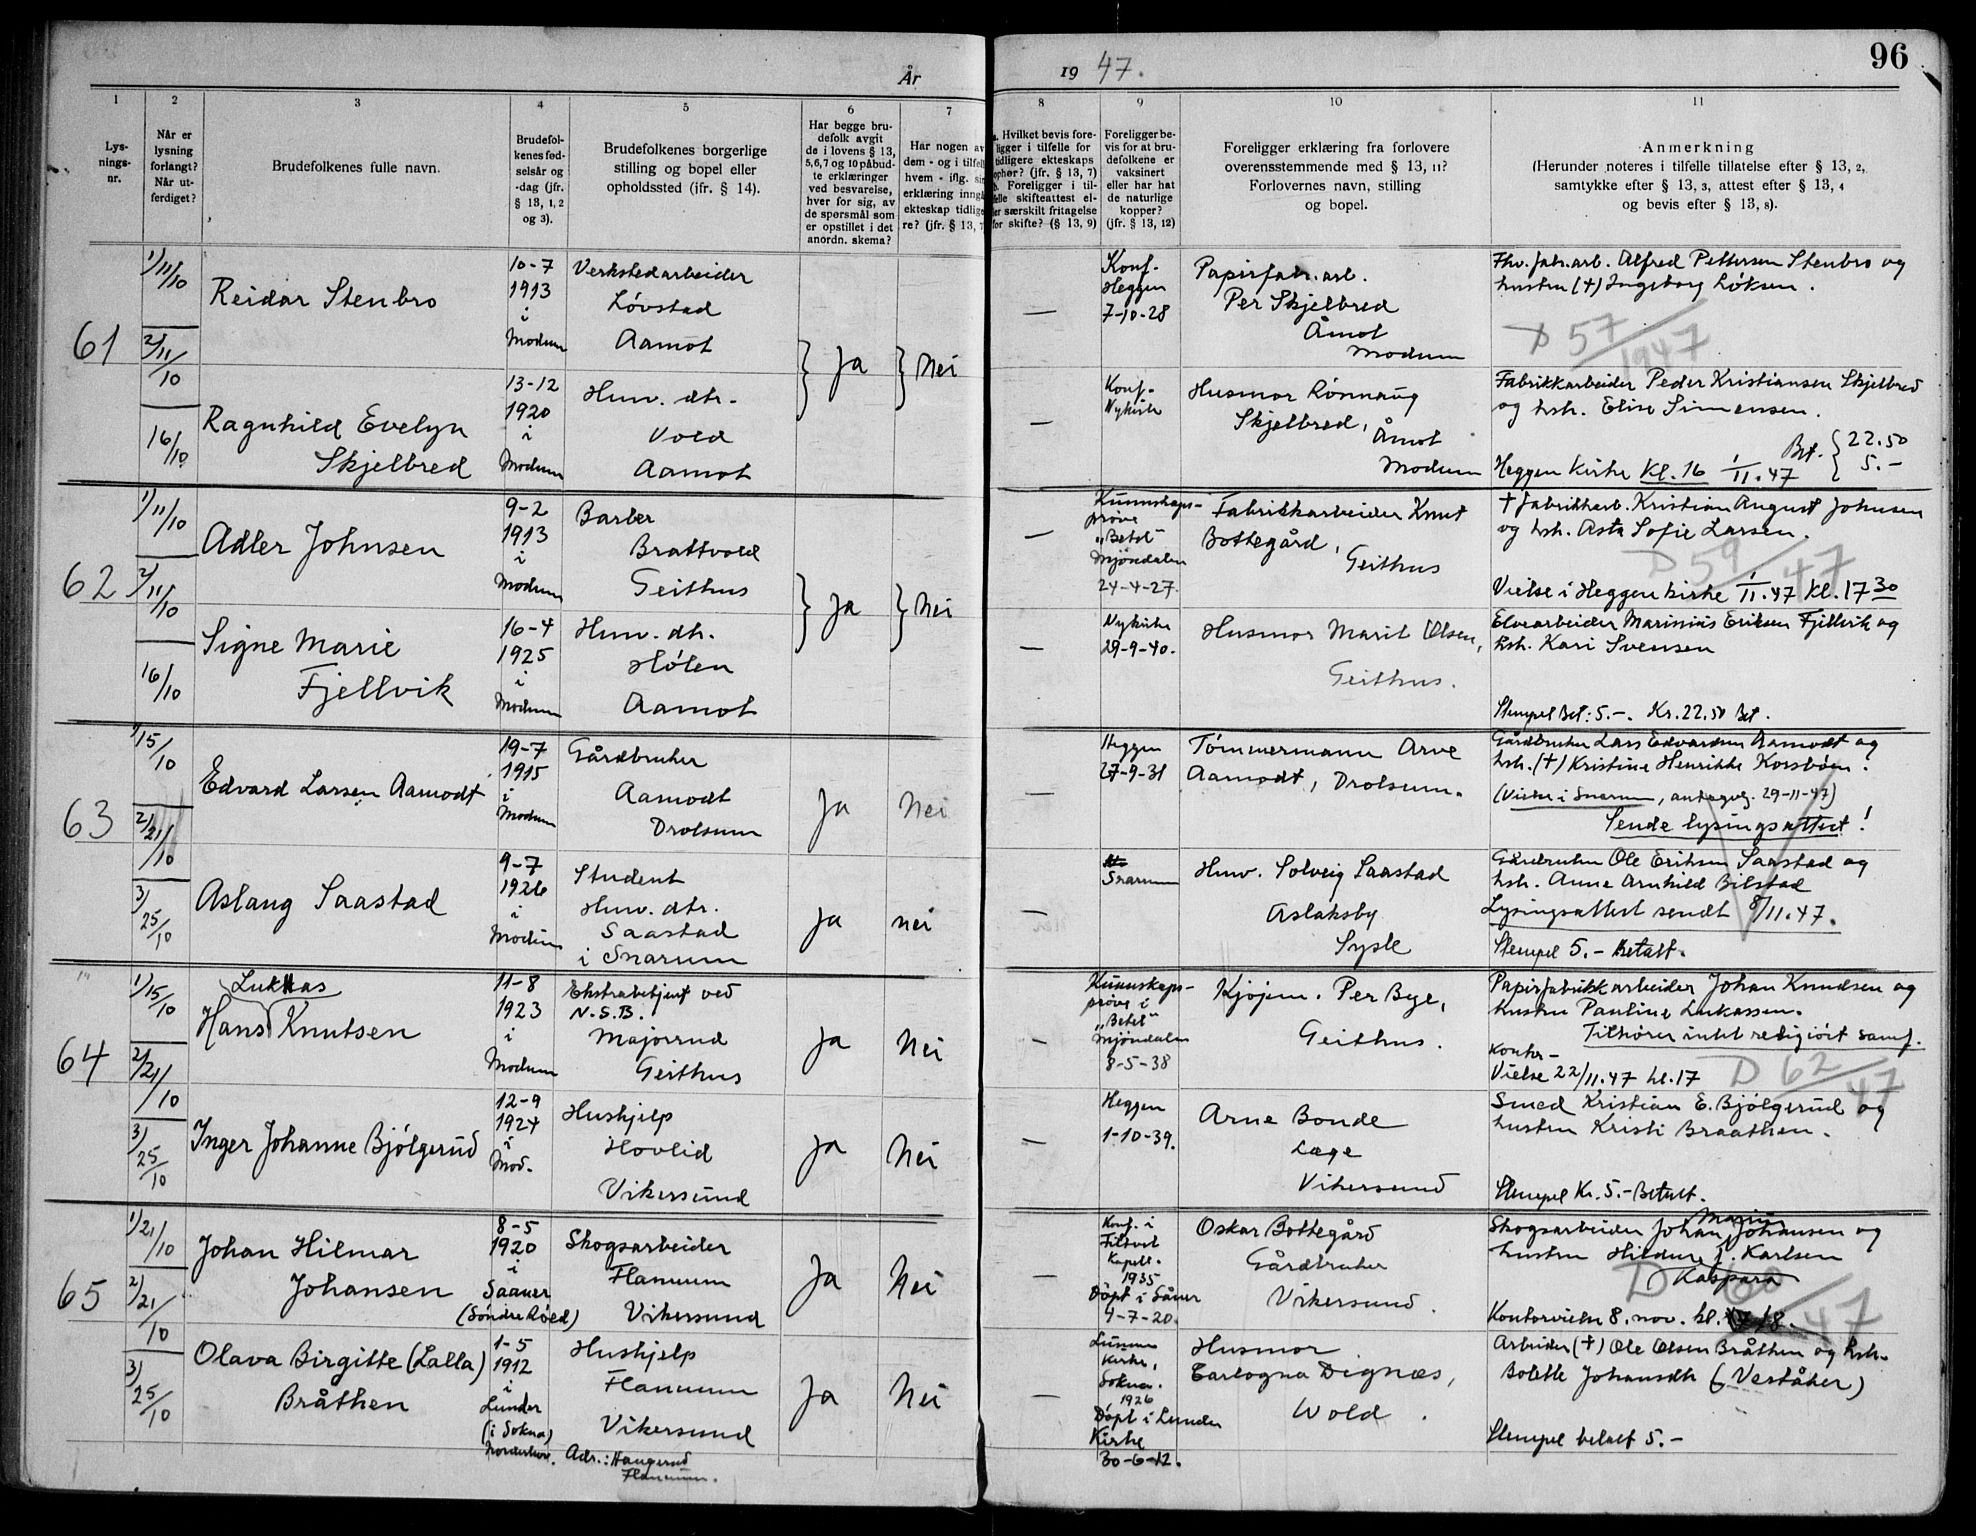 96
År
19 47.
1
2
3
4
5
6
7
8
9
10
11
Lys-
nings-
nr.
Når er
lysning
forlangt?
Når ut-
ferdiget?
Brudefolkenes fulle navn.
Brudefol-
kenes fød-
selsår og
-dag (jfr.
§ 13, 1, 2
og 3).
Brudefolkenes borgerlige
stilling og bopel eller
opholdssted (jfr. § 14).
Har begge bru-
defolk avgit
de i lovens § 13,
5,6,7 og 10 påbud-
te erklæringer
ved besvarelse,
hver for sig, av
de spørsmål som
er opstillet i det
anordn. skema?
Har nogen av
dem - og i tilfell
hvem - iflg. sin
erklæring inngå
ekteskap tidlige
re? (jfr. § 13, 7
a. Hvilket bevis fore-
ligger i tilfelle for
tidligere ekteskaps
ophør? (jfr. § 13, 7)
b. Foreligger i til-
felle skifteattest el-
ler særskilt fritagelse
for skifte? (§ 13, 9)
Foreligger be-
vis for at bru-
defolkene er
vaksinert
eller har hat
de naturlige
kopper?
(jfr. § 13, 12)
Foreligger erklæring fra forlovere
overensstemmende med § 13, 11?
Forlovernes navn, stilling
og bopel.
Anmerkning
(Herunder noteres i tilfelle tillatelse efter § 13, 2,
samtykke efter § 13, 3, attest efter § 13, 4
og bevis efter § 13, 8).
61
1/11/10
2/11/10
16/10
Reidar Stenbro
10-7
1913
i
Modum
Verkstedarbeider
Løvstad
Aamot
Ja
Nei
—
Konf.
Heggen
7-10-28
Papirfabr. arb.
Per Skjelbred
Åmot
Modum
Fhv. fabr.arb. Alfred Pettersen Stenbro og
hustru (+) Ingeborg Løksen.
D 57/1947
Ragnhild Evelyn
Skjelbred
13-12
1920
i
Modum
Huv. dtr.
Vold
Aamot
—
Konf.
Nykirke
Husmor Rønnaug
Skjelbred,
Åmot
Modum
Fabrikkarbeider Peder Kristiansen Skjelbred
og hsh. Elise Simensen.
Bet. { 22.50
5.-
Heggen Kirke Kl. 16 1/11.47
62
1/11/10
2/11/10
16/10
Adler Johnsen
9-2
1913
i
Modum
Barber
Brattvold
Geithus
Ja
Nei
—
Kunnskaps-
prøve
"Betel"
Mjøndalen
24-4-27.
Fabrikkarbeider Knut
Bottegård,
Geithus
+ fabrikkarb. Kristian August Johnsen
og hsh. Asta Sofie Larsen.
D 59/47
Vielse i Heggen kirke 1/11.47 kl. 17 30
Signe Marie
Fjellvik
16-4
1925
i
Modum
Huv. dtr.
Hølen
Aamot
—
Nykirke
29-9-40.
Husmor Marit Olsen,
Geithus.
Elvearbeider Marinius Eriksen Fjellvik og
hsh. Kari Svensen
Stempel Bet: 5.-. Kr. 22.50 Bet.
63
1/15/10
2/21/10
3/25/10
Edvard Larsen Aamodt
19-7
1915
i
Modum
Gårdbruker
Aamodt
Drolsum
Ja
Nei
—
Heggen
27-9-31
Tømmermann Arve
Aamodt, Drolsum.
Gårdbruker Lars Edvardsen Aamodt og
hsh. (+) Kristine Henrikke Korsbøen.
(Vielse i Snarum, antagvg. 29-11-47)
Sende lysingsattest!
Aslaug Saastad
9-7
1926
i
Modum
Student
Huv. dtr.
Saastad
i Snarum
Ja
nei
—
Snarum
Huv. Solveig Saastad
Aslaksby
Sysle
Gårdbruker Ole Eriksen Saastad og
hsh. Anne Arnhild Bilstad
Lysingsattest sendt 8/11.47.
Stempel 5.- Betalt.
64
1/15/10
2/21/10
3/25/10
Lukkas
Hans Knutsen
11-8
1923
i
Modum
Ekstrabetjent ved
N.S.B.
Majorrud
Geithus
Ja
Nei
—
Kunnskaps-
prøve i
"Betel"
Mjøndalen
8-5-38
Kjøpm. Per Bye,
Geithus.
Papirfabrikkarbeider Johan Knudsen og
hustru Pauline Lukassen.
Tilhører intet religiøst samf.
Kontor-
Vielse 22/11.47 kl. 17
D 62/47
Inger Johanne Bjølgerud
12-9
1924
i
Mod.
Hushjelp
Hovlid
Vikersund
Ja
Nei
—
Heggen
1-10-39.
Arne Bonde
Læge
Vikersund
Smed Kristian E. Bjølgerud og
hustru Kristi Braathen.
Stempel Kr. 5.- Betalt.
65
1/21/10
2/21/10
3/25/10
Johan Hilmar
Johansen
8-5
1920
i
Saaner
(Søndre Røed)
Skogsarbeider
Flannum
Vikersund
Ja
Nei
—
Konf. i
Filtvet
Kapell.
1935
Døpt i Såner
4-7-20.
Oskar Bottegård
Gårdbruker
Vikersund.
Marius
Skogsarbeider Johan Johansen og
hustru Hildur J. Karlsen
Kaspara
D 60/47
Kontorvielse 8. nov. kl. 18.
Olava Birgitte (Lalla)
Bråthen
1-5
1912
i
Lunder
(i Sokna)
Norderhov.
Hushjelp
Flannum
Vikersund
Adr.: Haugerud
Flannum.
Ja
Nei
—
Lunner
Kirke,
Sokna.
1926
Døpt i Lunder
Kirke
30-6-12.
Husmor
Tarlogna Dignæs,
Wold.
Arbeider (+) Ole Olsen Bråthen og hsh.
Bolette Johansdtr (Veståker)
Stempel betalt 5.-